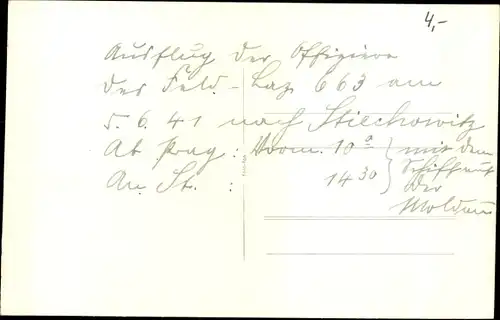 4,-
Ausflug der Offiziere
des Feld-Laz 663 am
5.6.41 nach Stiechowitz
Ab Prag: Vorm. 10 a } mit dem
Schiff auf
An St. : 14 30 der
Moldau